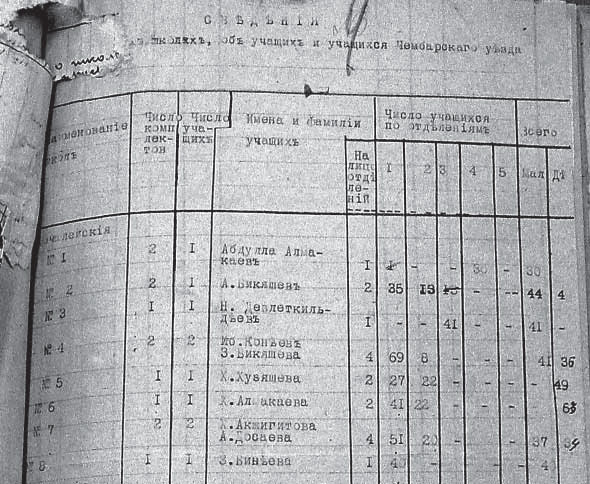 СВѢДѢНIЯ
школахъ, объ учащихъ и учащихся Чембарскаго уѣзда
Число комплектов Число учащихъ Имена и фамилiи учащихъ На лицо отдѣленiй Число учащихся по отдѣленiямъ Всего
I 2 3 4 5 Мал Дѣ
№ I 2 I Абдулла Алма-
каевъ I - - 30 - 30
№ 2 2 I А.Бикяшевъ 2 35 13 - -- 44 4
№ 3 I I Н. Девлеткиль-
дѣевъ I - - 41 - - 41 -
№ 4 2 2 Иб.Конѣевъ
З.Бикяшева 4 69 8 - - - 41 36
№ 5 I I Х.Хувяшева 2 27 22 - - - 49
№ 6 I I Х.Алмакаева 2 41 22 - - - 63
№ 7 2 2 Х.Акжигитова
А.Досаева 4 51 20 - - - 37
№ 8 I I З.Бикѣева I - - - - 4